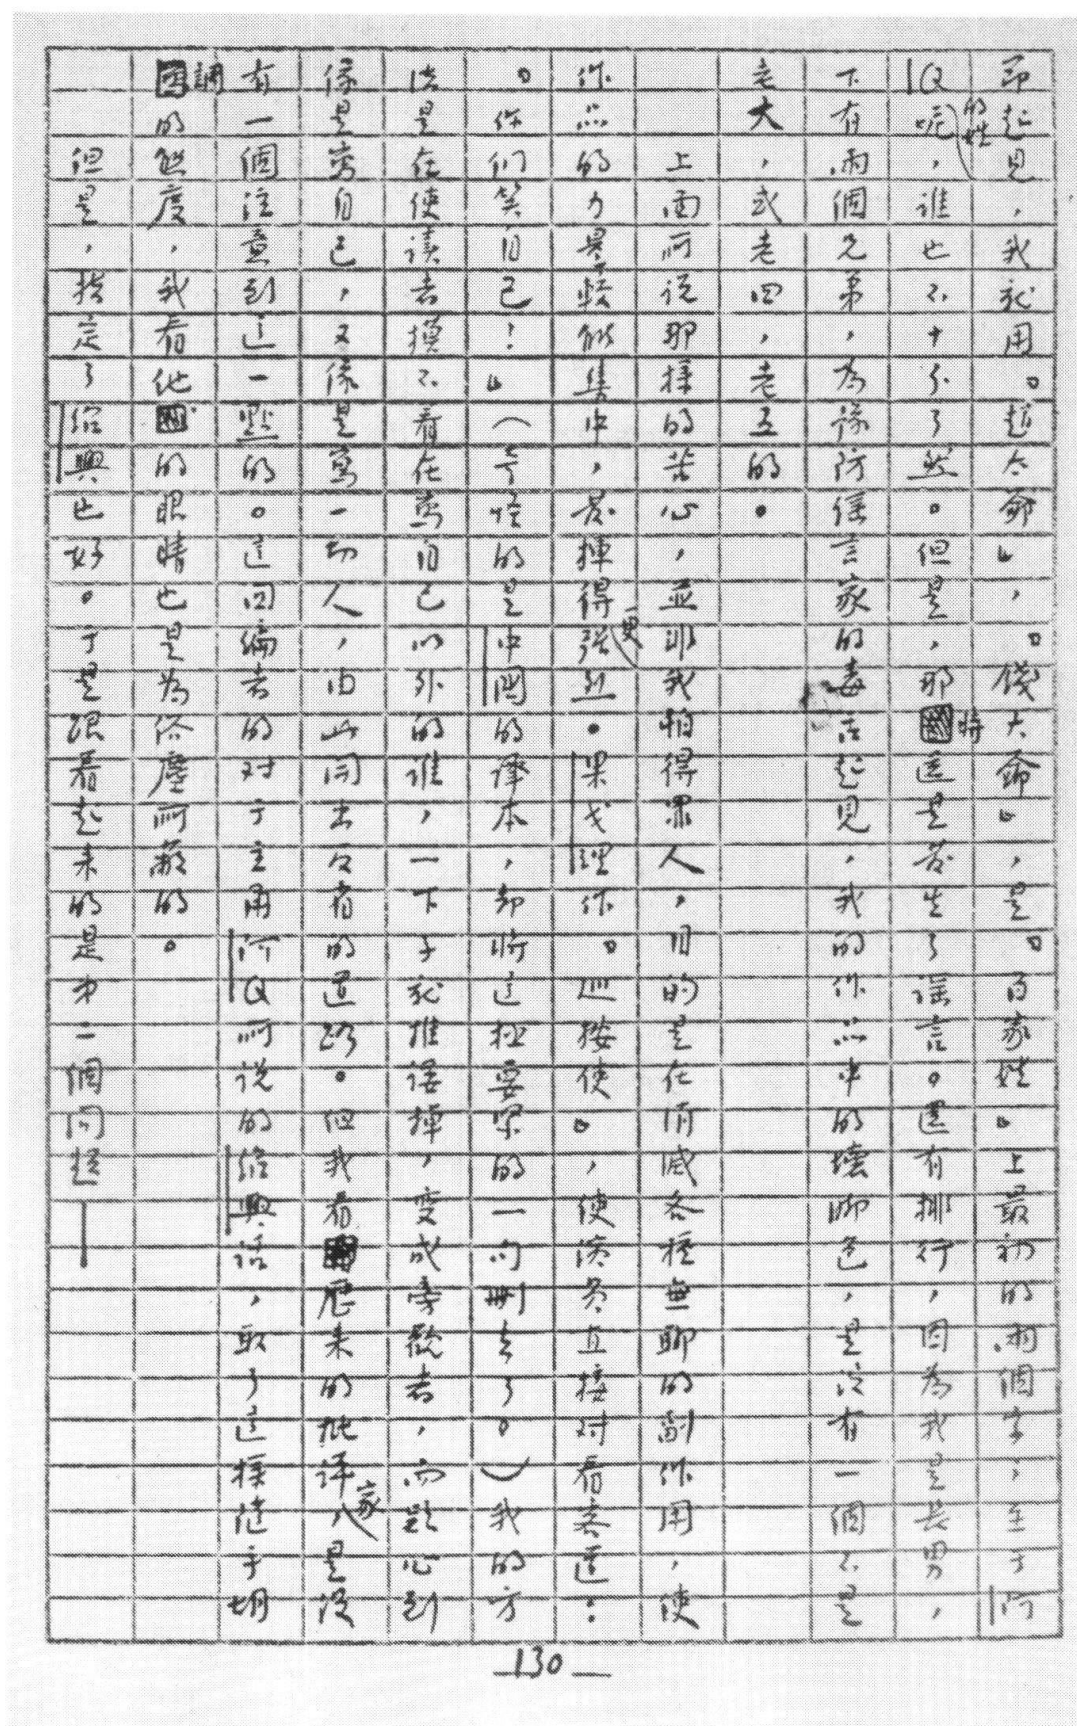 節起見，我就用『趙太爺』，『錢大爺』，是『百家姓』上最初的兩個字；至于阿
Q的姓呢，誰也不十分了然。但是，那時還是發生了謠言。還有排行，因為我是長男，
下有兩個兄弟，為豫防謠言家的毒舌起見，我的作品中的壞腳色，是沒有一個不是
老大，或老四，老五的。
上面所说那樣的苦心，並非我怕得罪人，目的是在消滅各種無聊的副作用，使
作品的力量較能集中，發揮得更强烈。果戈理作『巡按使』，使演員直接对看客道：
『你们笑自己！』（奇怪的是中國的譯本，却將這極要緊的一句删去了。）我的方
法是在使讀者摸不着在寫自己以外的誰，一下子就推諉掉，變成旁觀者，而疑心到
像是寫自己，又像是寫一切人，由此開出反省的道路。但我看歷来的批評家，是沒
有一個注意到這一點的。這回編者的对于主角阿Q所说的紹興话，取了這樣隨手胡
調的態度，我看他的眼睛也是為俗塵所蔽的。
但是，指定了紹興也好。于是跟着起来的是第二個问题——
130